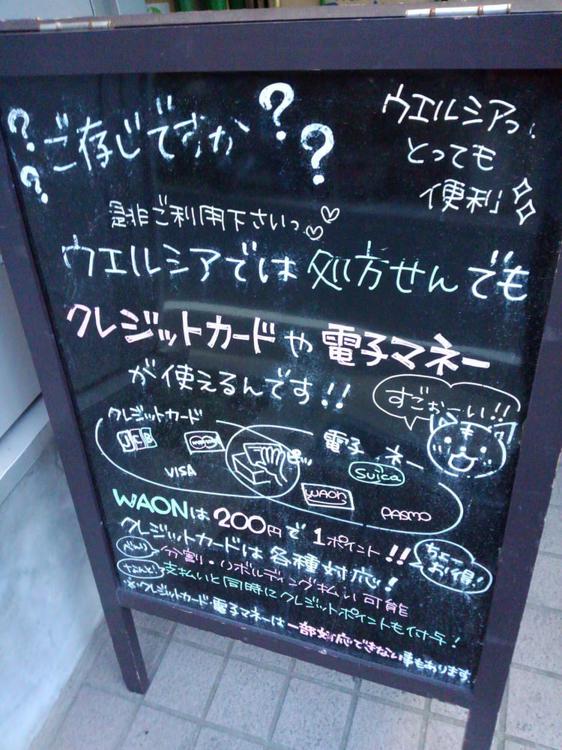 ??ご存じですか??
ウエルシアっ!
とっても
便利
是非ご利用下さいっ♡♡
ウエルシアでは処方せんでも
クレジットカードや電子マネー
が使えるんです!!
すごぉーい!!
クレジットカード
電子マネー
JCB
VISA
Suica
WAON
PASMO
WAONは200円で1ポイント!!
ちょーお得!
クレジットカードは各種対応!
分割・リボルディング払い可能
なんと!
支払いと同時にクレジットポイントも付与!
※クレジットカード・電子マネーは一部対応できない事もあります